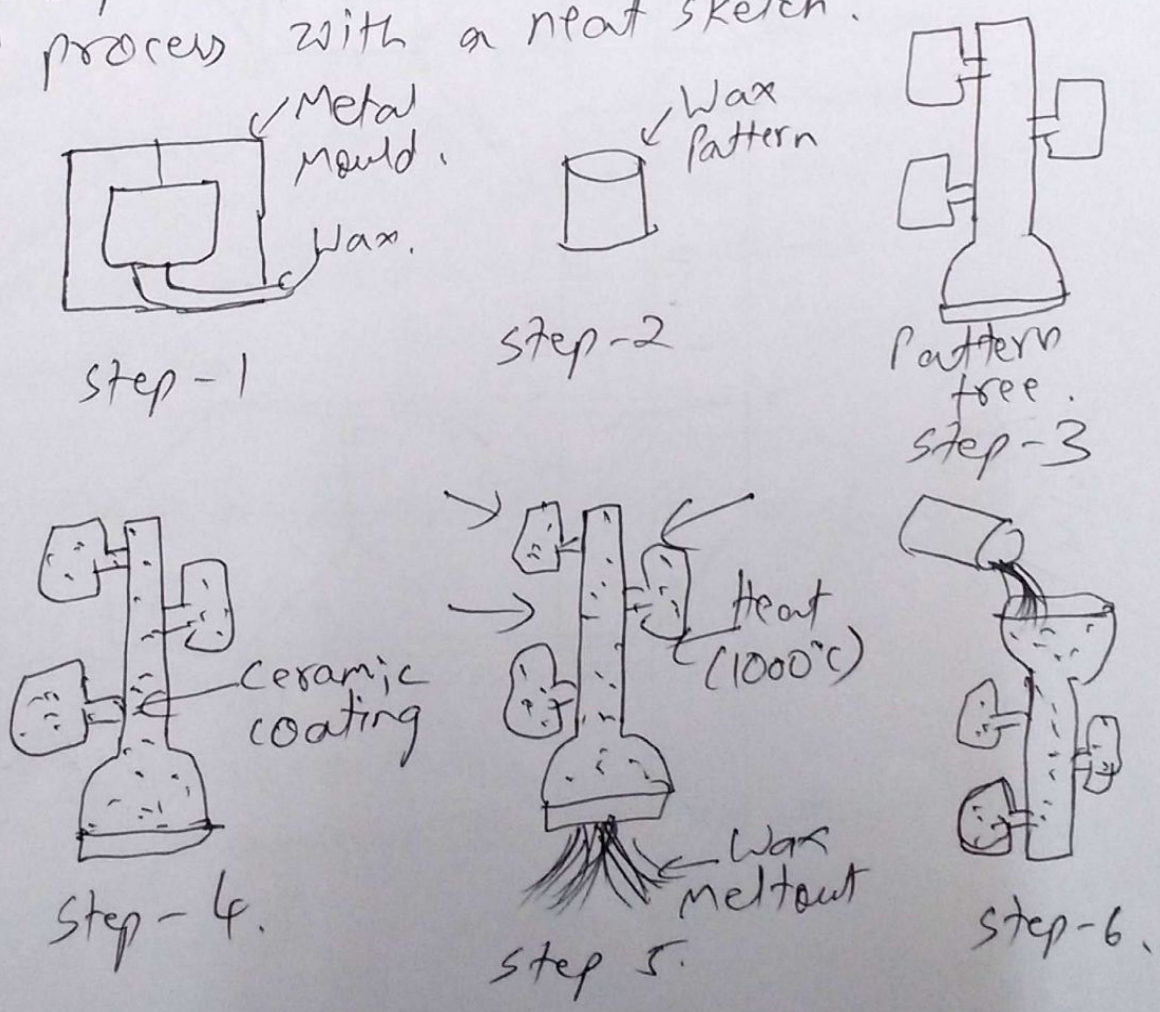 process with a neat sketch.
Metal
Mould.
Wax.
Step-1
Wax
Pattern
Step-2
Pattern
tree.
Step-3
Ceramic
coating
Step-4.
Heat
(1000°C)
Wax
meltout
Step 5.
Step-6.